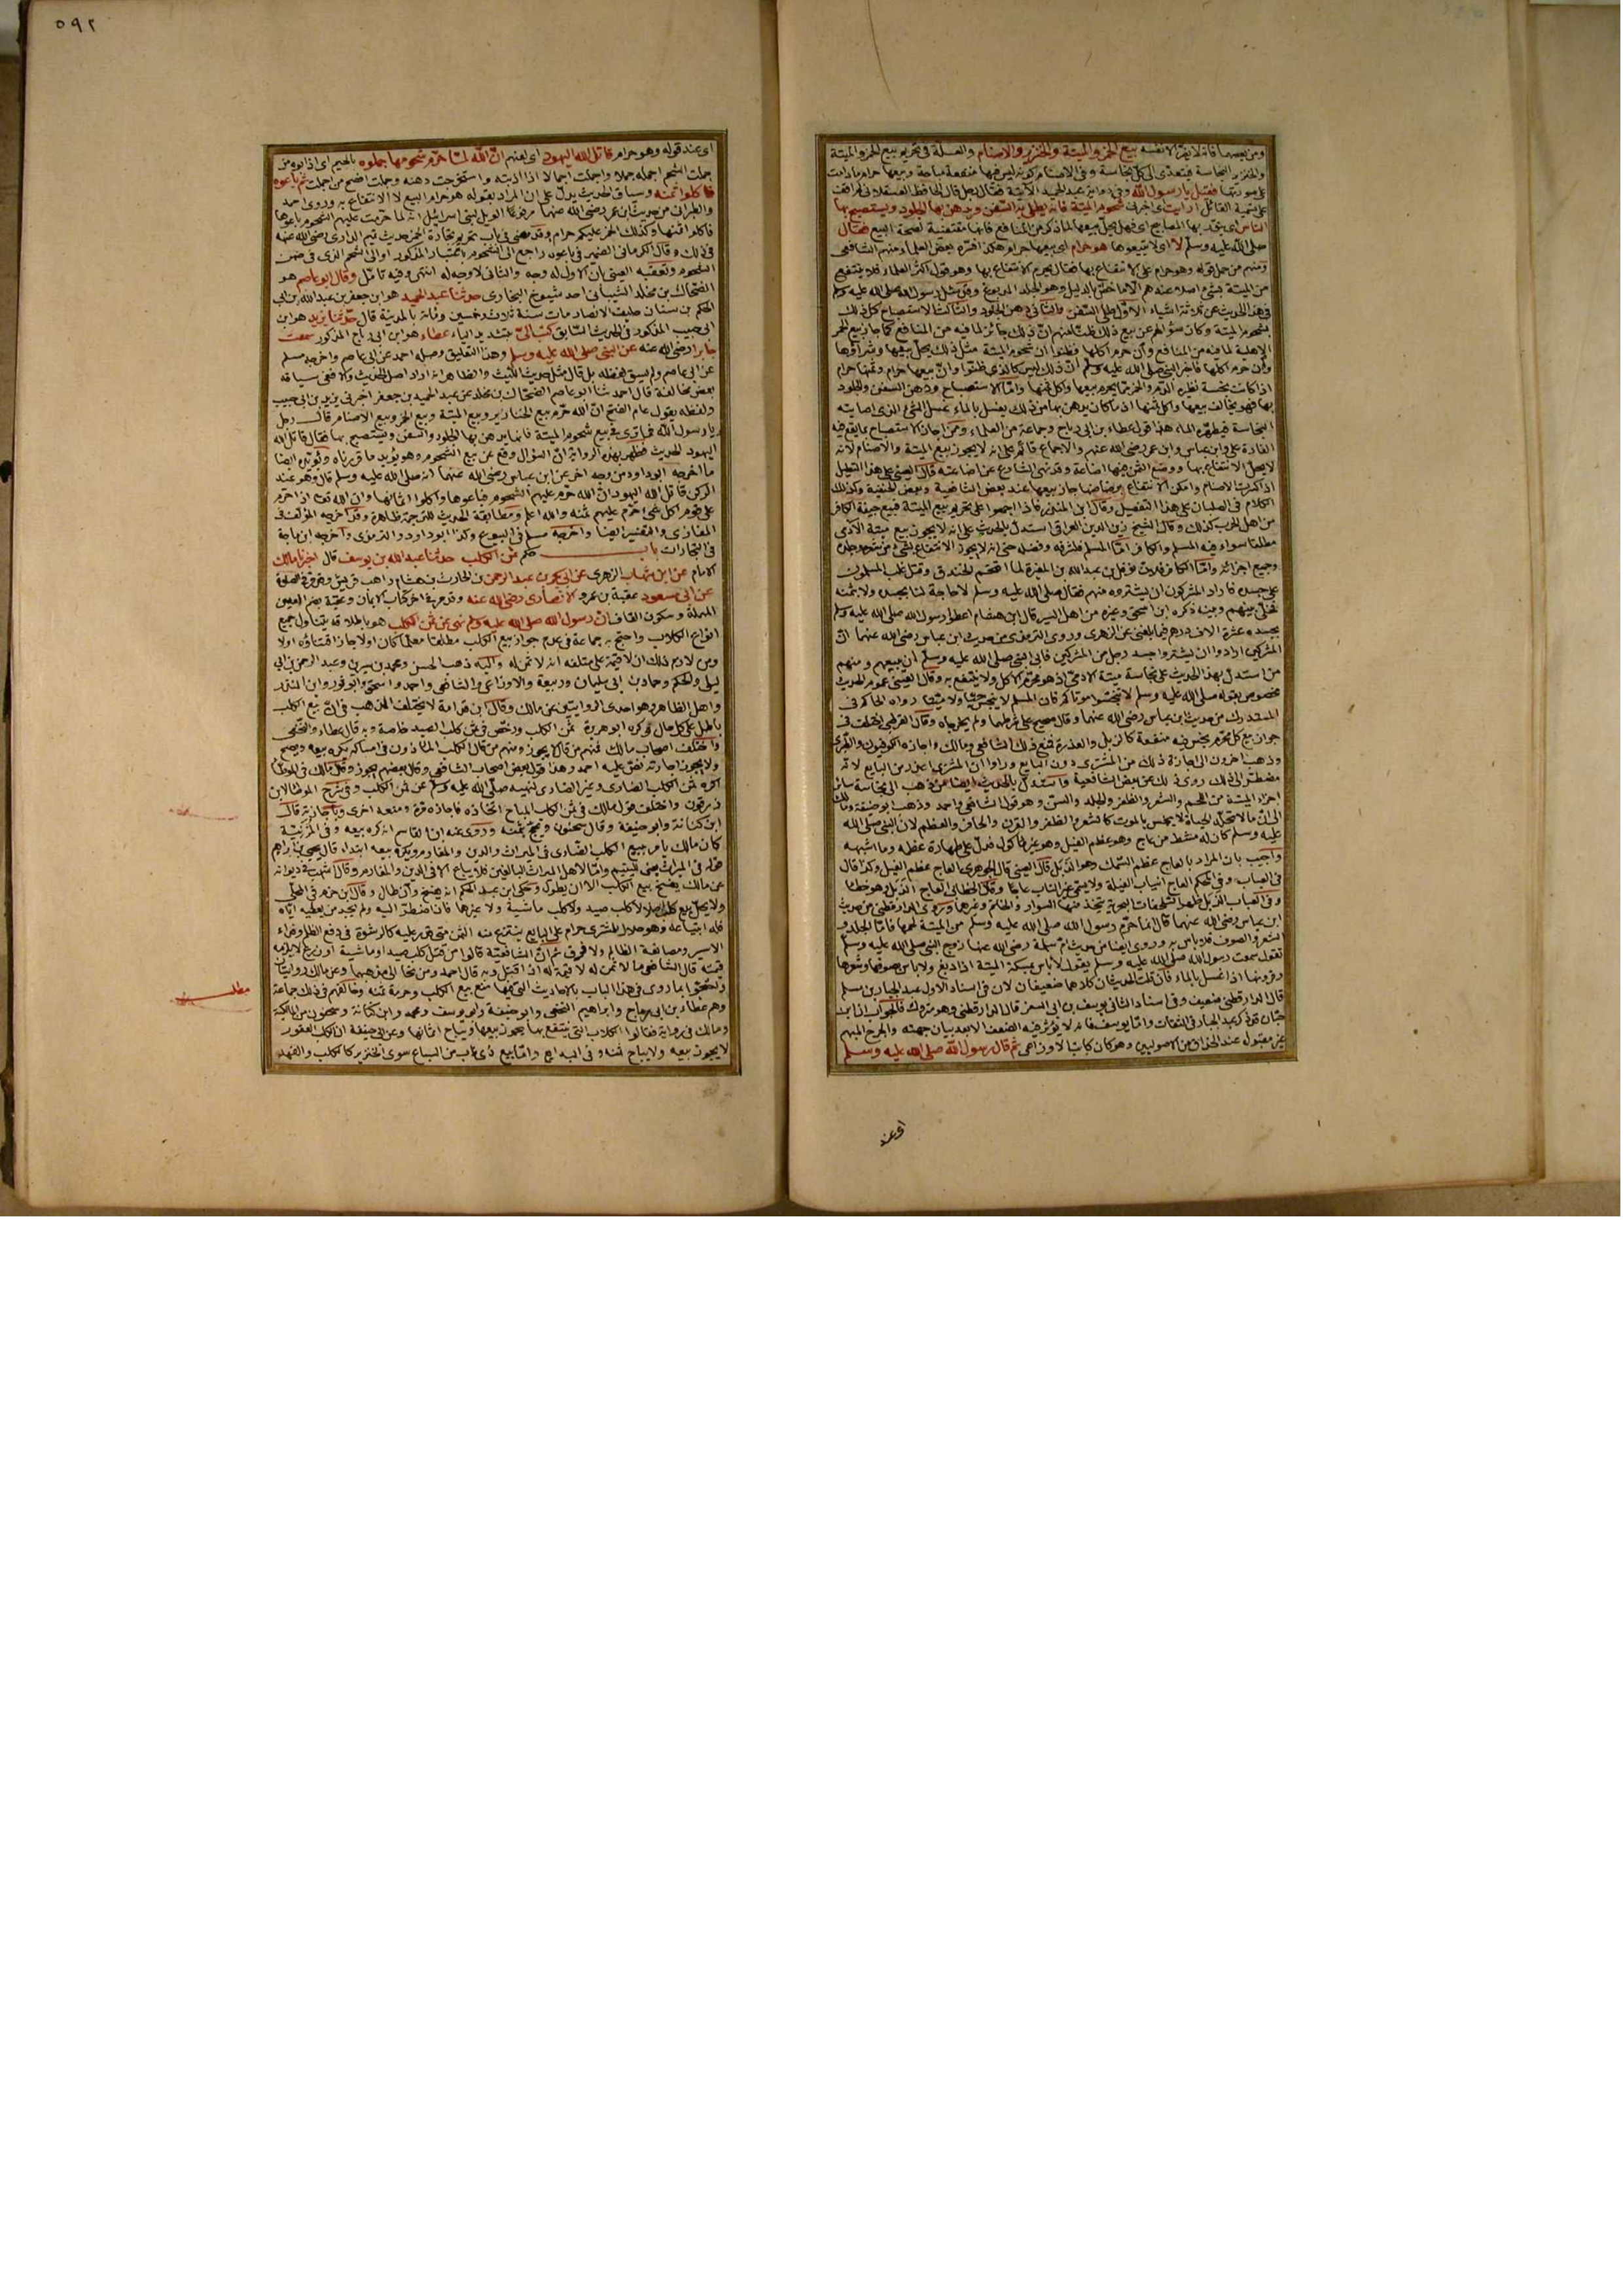 ومن بعضهما فانه لا يقر لا نفسه بيع الخمر والميتة والخنزير والاصنام والعلة فى تحريم بيع الخمر والميتة
والخنزير النجاسة فيتعدى الى كل نجاسة وفى الاصنام كونه ليس فيها منفعة مباحة وبيعها حرام ما دامت
على صورتها فقيل يا رسول الله وفى رواية عبد الحميد الآتية فقال رجل قال الحافظ العسقلانى لم اقف
على تسمية القائل ارايت اى اخبرنى شحوم الميتة فانه يطلى بها السفن ويدهن بها الجلود ويستصبح بها
الناس اى ينور بها المصابيح اى فهل يحل بيعها لما ذكر من المنافع فانها مقتضية لصحة البيع فقال
صلى الله عليه وسلم لا اى لا تبيعوها هو حرام اى بيعها حرام هكذا فسره بعض العلماء ومنهم الشافعى
ومنهم من حمل قوله وهو حرام على الانتفاع بها فقال يحرم الانتفاع بها وهو قول اكثر العلماء فلا ينتفع
من الميتة بشئ اصلا عندهم الا ما خص بالدليل وهو الجلد المدبوغ وقد سئل رسول الله صلى الله عليه وسلم
فى هذا الحديث عن ثلاثة اشياء الاول طلى السفن والثانى دهن الجلود والثالث الاستصباح كل ذلك
بشحوم الميتة وكان سؤالهم عن بيع ذلك ظنا منهم ان ذلك جائز لما فيه من المنافع كما جاز بيع الحمر
الاهلية لما فيه من المنافع وان حرم اكلها فظنوا ان شحوم الميتة مثل ذلك يحل بيعها وشراؤها
وان حرم اكلها فاخبر النبى صلى الله عليه وسلم ان ذلك ليس كالذى ظنوا وان بيعها حرام وثمنها حرام
اذا كانت نجسة نظيره الدم والخمر مما يحرم بيعها واكل ثمنها واما الاستصباح ودهن السفن والجلود
بها فهو يخالف بيعها واكل ثمنها اذ ما كان يدهن بها من ذلك يغسل بالماء غسل الشئ الذى اصابته
النجاسة فيطهره الماء هذا قول عطاء بن ابى رباح وجماعة من العلماء وممن اجاز الاستصباح بما يقع فيه
الفارة على وابن عباس وابن عمر رضى الله عنهم والاجماع قائم على انه لا يجوز بيع الميتة والاصنام لانه
لا يحل الانتفاع بها ووضع الثمن فيها اضاعة وقد نهى الشارع عن اضاعته قال العينى على هذا التعليل
اذا كسرت الاصنام وامكن الانتفاع برضاضها جاز بيعها عند بعض الشافعية وبعض الحنفية وكذلك
الكلام فى الصلبان على هذا التفصيل وقال ابن المنذر فاذا اجمعوا على تحريم بيع الميتة فبيع جيفة الكافر
من اهل الحرب كذلك وقال الشيخ زين الدين العراقى استدل بالحديث على انه لا يجوز بيع ميتة الآدمى
مطلقا سواء فيه المسلم والكافر اما المسلم فلشرفه وفضله حتى انه لا يجوز الانتفاع بشئ من شعره وجلده
وجميع اجزائه واما الكافر فلان نوفل بن عبد الله بن المغيرة لما اقتحم الخندق وقتل غلب المسلمون
على جسده فاراد المشركون ان يشتروه منهم فقال صلى الله عليه وسلم لا حاجة لنا بجسده ولا بثمنه
فخلى بينهم وبينه ذكره ابن اسحق وغيره من اهل السير قال ابن هشام اعطوا رسول الله صلى الله عليه وسلم
بجسده عشرة الاف درهم فيما بلغنى عن الزهرى وروى الترمذى من حديث ابن عباس رضى الله عنهما ان
المشركين ارادوا ان يشتروا جسد رجل من المشركين فابى النبى صلى الله عليه وسلم ان يبيعهم ومنهم
من استدل بهذا الحديث على نجاسة ميتة الآدمى اذ هو محرم الاكل ولا ينتفع به وقال العينى عموم الحديث
مخصوص بقوله صلى الله عليه وسلم لا تنجسوا موتاكم فان المسلم لا ينجس حيا ولا ميتا رواه الحاكم فى
المستدرك من حديث ابن عباس رضى الله عنهما وقال صحيح على شرطهما ولم يخرجاه وقال القرطبى اختلف فى
جواز بيع كل محرم نجس فيه منفعة كالزبل والعذرة فمنع ذلك الشافعى ومالك واجازه الكوفيون والطبرى
وذهب اخرون الى اجازة ذلك من المشترى دون البايع وراوا ان المشترى اعذر من البايع لانه
مضطر الى ذلك روى ذلك عن بعض الشافعية واستدل بالحديث ايضا من ذهب الى نجاسة سائر
اجزاء الميتة من اللحم والشعر والظفر والجلد والسن وهو قول الشافعى واحمد وذهب ابو حنيفة ومالك
الى ان ما لا تحله الحياة لا ينجس بالموت كالشعر والظفر والقرن والحافر والعظم لان النبى صلى الله
عليه وسلم كان له مشط من عاج وهو عظم الفيل وهو غير مأكول فدل على طهارة عظمه وما اشبهه
واجيب بان المراد بالعاج عظم السمك وهو الذبل قال العينى قال الجوهرى العاج عظم الفيل وكذا قال
فى العباب وفى المحكم العاج انياب الفيلة ولا يسمى غير الناب عاجا وقال الخطابى العاج الذبل وهو خطأ
وفى العباب الذبل ظهر السلحفاة البحرية يتخذ منها السوار والخاتم وغيرهما وروى الدارقطنى من حديث
ابن عباس رضى الله عنهما قال انما حرم رسول الله صلى الله عليه وسلم من الميتة لحمها فاما الجلد و
الشعر والصوف فلا بأس به وروى ايضا من حديث ام سلمة رضى الله عنها زوج النبى صلى الله عليه وسلم
تقول سمعت رسول الله صلى الله عليه وسلم يقول لا بأس بمسك الميتة اذا دبغ ولا بأس بصوفها وشعرها
وقرونها اذا غسل بالماء فان قلت الحديثان كلاهما ضعيفان لان فى اسناد الاول عبد الجبار بن مسلم
قال الدارقطنى ضعيف وفى اسناد الثانى يوسف بن ابى السفر قال الدارقطنى وهو متروك فالجواب ان ابن
حبان قد ذكر عبد الجبار فى الثقات واما يوسف فانه لا يؤثر فيه الضعف الا بعد بيان جهته والجرح المبهم
غير مقبول عند الحذاق من الاصوليين وهو كان كاتب الاوزاعى ثم قال رسول الله صلى الله عليه وسلم
اى عند
٥٩٢
اى عند قوله وهو حرام قاتل الله اليهود اى لعنهم ان الله لما حرم شحومها جملوه بالجيم اى اذابوه من
جملت الشحم اجمله جملا واجملت اجمالا اذا اذبته واستخرجت دهنه وجملت افصح من اجملت ثم باعوه
فاكلوا ثمنه وسياق الحديث يدل على ان المراد بقوله هو حرام البيع لا الانتفاع به وروى احمد
والطبرانى من حديث ابن عمر رضى الله عنهما مرفوعا الويل لبنى اسرائيل انه لما حرمت عليهم الشحوم باعوها
فاكلوا ثمنها وكذلك الخمر عليكم حرام وقد مضى فى باب تحريم تجارة الخمر حديث تميم الدارى رضى الله عنه
فى ذلك وقال الكرمانى الضمير فى باعوه راجع الى الشحوم باعتبار المذكور او الى الشحم الذى فى ضمن
الشحوم وتعقبه العينى بان الاول له وجه والثانى لا وجه له انتهى وفيه تأمل وقال ابو عاصم هو
الضحاك بن مخلد الشيبانى احد شيوخ البخارى حدثنا عبد الحميد هو ابن جعفر بن عبد الله بن ابى
الحكم بن سنان حليف الانصار مات سنة ثلاث وخمسين ومائة بالمدينة قال حدثنا يزيد هو ابن
ابى حبيب المذكور فى الحديث السابق كتب الىّ بتشديد الياء عطاء هو ابن ابى رباح المذكور سمعت
جابرا رضى الله عنه عن النبى صلى الله عليه وسلم وهذا التعليق وصله احمد عن ابى عاصم واخرجه مسلم
عن ابى عاصم ولم يسق لفظه بل قال مثل حديث الليث والظاهر انه اراد اصل الحديث والا ففى سياقه
بعض مخالفة قال احمد ثنا ابو عاصم الضحاك بن مخلد عن عبد الحميد بن جعفر اخبرنى يزيد بن ابى حبيب
ولفظه يقول عام الفتح ان الله حرم بيع الخنازير وبيع الميتة وبيع الخمر وبيع الاصنام قال رجل
يا رسول الله فما ترى فى بيع شحوم الميتة فانها يدهن بها الجلود والسفن ويستصبح بها فقال قاتل الله
اليهود الحديث فظهر بهذه الرواية ان السؤال وقع عن بيع الشحوم وهو يؤيد ما قررناه ويؤيده ايضا
ما اخرجه ابو داود من وجه اخر عن ابن عباس رضى الله عنهما انه صلى الله عليه وسلم قال وهو عند
الركن قاتل الله اليهود ان الله حرم عليهم الشحوم فباعوها واكلوا اثمانها وان الله تعالى اذا حرم
على قوم اكل شئ حرم عليهم ثمنه والله اعلم ومطابقة الحديث للترجمة ظاهرة وقد اخرجه المؤلف فى
المغازى والتفسير ايضا واخرجه مسلم فى البيوع وكذا ابو داود والترمذى واخرجه ابن ماجة
فى التجارات باب حكم ثمن الكلب حدثنا عبد الله بن يوسف قال اخبرنا مالك
الامام عن ابن شهاب الزهرى عن ابى بكر بن عبد الرحمن بن الحارث بن هشام راهب قريش وقد مر فى الصلوة
عن ابى مسعود عقبة بن عمرو الانصارى رضى الله عنه وقد مر فى اخر كتاب الايمان وعقبة بضم العين
المهملة وسكون القاف ان رسول الله صلى الله عليه وسلم نهى عن ثمن الكلب هو باطلاقه يتناول جميع
انواع الكلاب واحتج به جماعة فى عدم جواز بيع الكلب مطلقا معلما كان اولا جاز اقتناؤه اولا
ومن لازم ذلك ان لا قيمة على متلفه انه لا ثمن له واليه ذهب الحسن ومحمد بن سيرين وعبد الرحمن بن ابى
ليلى والحكم وحماد بن ابى سليمان وربيعة والاوزاعى والشافعى واحمد واسحق وابو ثور وابن المنذر
واهل الظاهر وهو احدى الروايتين عن مالك وقال ابن قدامة لا يختلف المذهب فى ان بيع الكلب
باطل على كل حال وكره ابو هريرة ثمن الكلب ورخص فى ثمن كلب الصيد خاصة وبه قال عطاء والنخعى
واختلف اصحاب مالك فمنهم من قال لا يجوز ومنهم من قال الكلب المأذون فى امساكه يكره بيعه ويصح
ولا يجوز اجارته نص عليه احمد وهذا قول بعض اصحاب الشافعى وقال بعضهم يجوز وقال مالك فى الموطأ
اكره ثمن الكلب الضارى وغير الضارى لنهيه صلى الله عليه وسلم عن ثمن الكلب وفى شرح الموطأ لابن
زرقون واختلف قول مالك فى ثمن الكلب المباح اتخاذه فاجازه مرة ومنعه اخرى وباجازته قال
ابن كنانة وابو حنيفة وقال سحنون ويحج بثمنه وروى عنه ابن القاسم انه كره بيعه وفى المزنية
كان مالك يأمر ببيع الكلب الضارى فى الميراث والدين والمغارم ويكره بيعه ابتداء قال يحيى بن ابراهيم
قوله فى الميراث يعنى لليتيم واما لاهل الميراث البالغين فلا يباع الا فى الدين والمغارم وقال اشهب فى ديوانه
عن مالك يفسخ بيع الكلب الا ان يطول وحكى ابن عبد الحكم انه يفسخ وان طال وقال ابن حزم فى المحلى
ولا يحل بيع كلب اصلا لا كلب صيد ولا كلب ماشية ولا غيرهما فان اضطر اليه ولم يجد من يعطيه اياه
فله ابتياعه وهو حلال للمشترى حرام على البايع ينتزع منه الثمن متى قدر عليه كالرشوة فى دفع الظلم وفداء
الاسير ومصانعة الظالم ولا فرق ثم ان الشافعية قالوا من قتل كلب صيد او ماشية او زرع لا يلزمه
قيمته قال الشافعى ما لا ثمن له لا قيمة له اذا قتل وبه قال احمد ومن نحا الى مذهبهما وعن مالك روايتان
واحتجوا بما روى فى هذا الباب بالاحاديث التى فيها منع بيع الكلب وحرمة ثمنه وخالفهم فى ذلك جماعة
وهم عطاء بن ابى رباح وابراهيم النخعى وابو حنيفة وابو يوسف ومحمد وابن كنانة وسحنون من المالكية
ومالك فى رواية فقالوا الكلاب التى ينتفع بها يجوز بيعها ويباح اثمانها وعن ابى حنيفة ان الكلب العقور
لا يجوز بيعه ولا يباح ثمنه وفى البدايع واما بيع ذى ناب من السباع سوى الخنزير كالكلب والفهد
مطلب